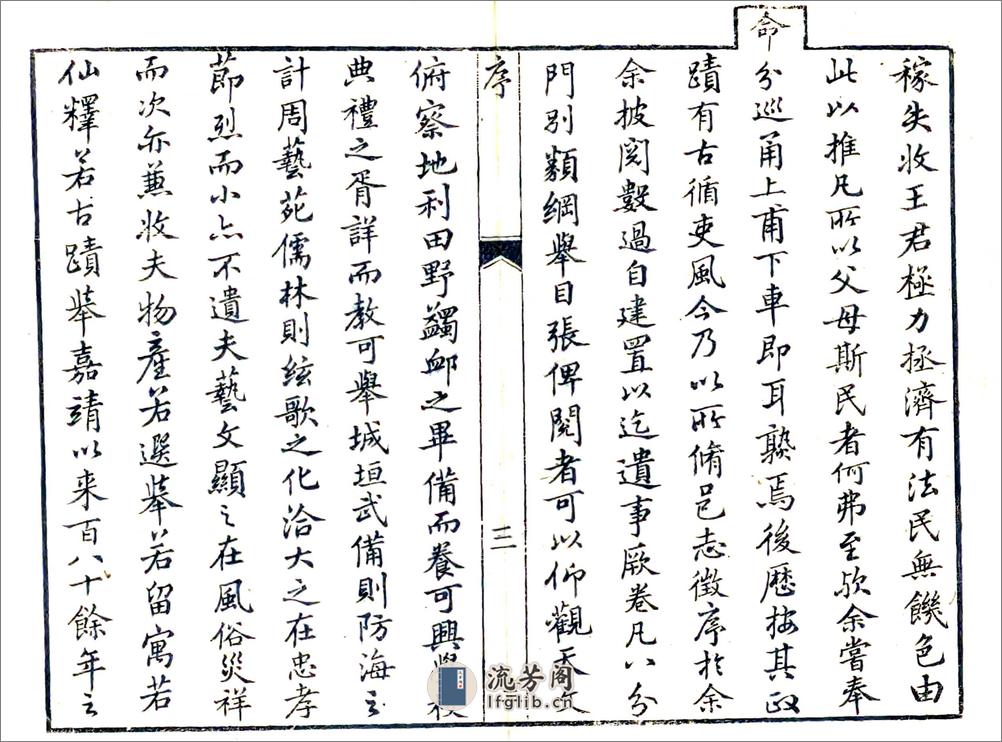 稼失收王君極力拯濟有法民無饑色由
此以推凡所以父母斯民者何弗至歟余嘗奉
命分巡甬上甫下車即耳熟焉後歷按其政
蹟有古循吏風今乃以所脩邑志徵序於余
余披閱數過自建置以迄遺事厥卷凡八分
門別類綱舉目張俾閱者可以仰觀天文
序
三
俯察地利田野蠲卹之畢備而養可興學校
典禮之胥詳而教可舉城垣武備則防海之
計周藝苑儒林則絃歌之化洽大之在忠孝
節烈而小亦不遺夫藝文顯之在風俗災祥
而次亦兼收夫物產若選舉若留寓若
仙釋若古蹟舉嘉靖以来百八十餘年之
流芳阁
lfglib.cn